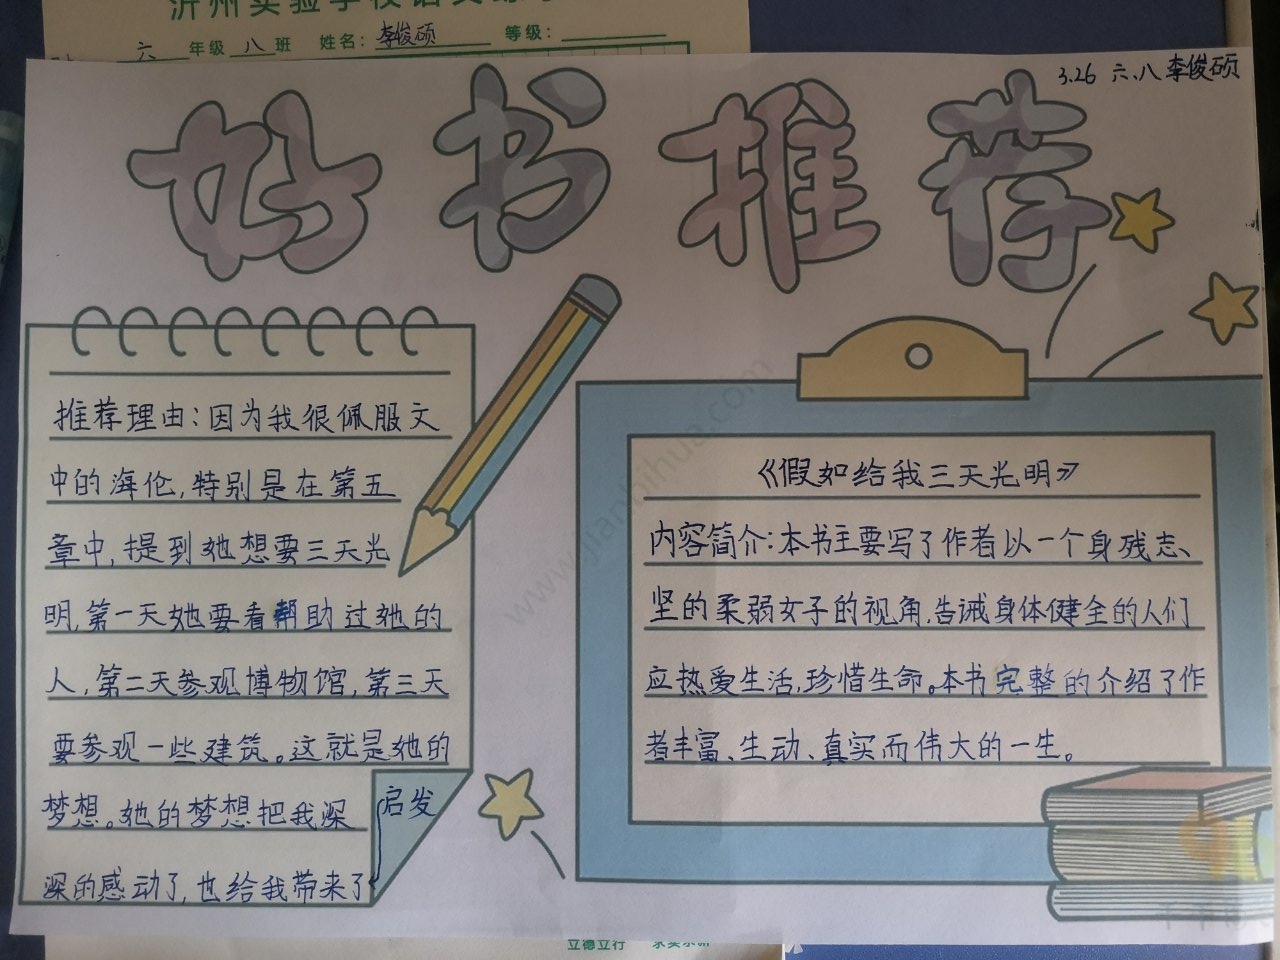 沂州实验学校语文
六 年级 八 班 姓名：李俊硕 等级：
3.26 六、八 李俊硕
好书推荐
推荐理由：因为我很佩服文
中的海伦，特别是在第五
章中，提到她想要三天光
明，第一天她要看帮助过她的
人，第二天参观博物馆，第三天
要参观一些建筑。这就是她的
梦想。她的梦想把我深
深的感动了，也给我带来了
启发
《假如给我三天光明》
内容简介：本书主要写了作者以一个身残志、
坚的柔弱女子的视角，告诫身体健全的人们
应热爱生活，珍惜生命。本书完整的介绍了作
者丰富、生动、真实而伟大的一生。
www.jianbihua.com
立德立行 求实求新